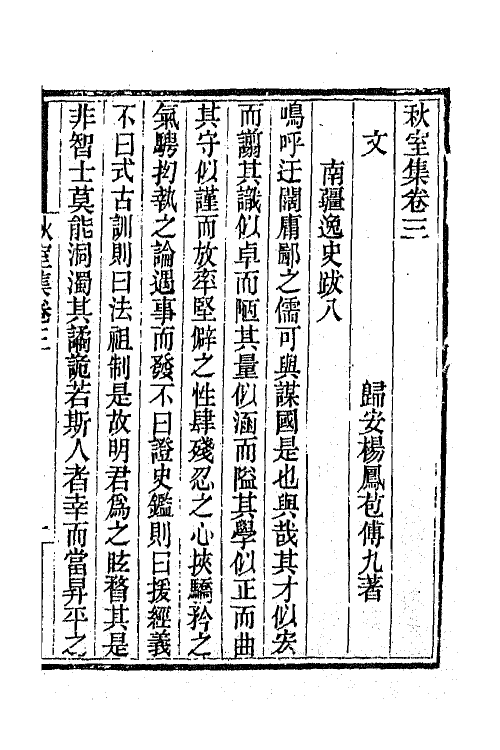 秋室集卷三
文
歸安楊鳳苞傅九著
南疆逸史跋八
嗚呼迂闊庸鄙之儒可與謀國是也與哉其才似宏
而譾其識似卓而陋其量似涵而隘其學似正而曲
其守似謹而放率堅僻之性肆殘忍之心挾驕矜之
氣騁拘執之論遇事而發不曰證史鑑則曰援經義
不曰式古訓則曰法祖制是故明君爲之眩瞀其是
非智士莫能洞濁其譎詭若斯人者幸而當昇平之
秋室集卷三
一